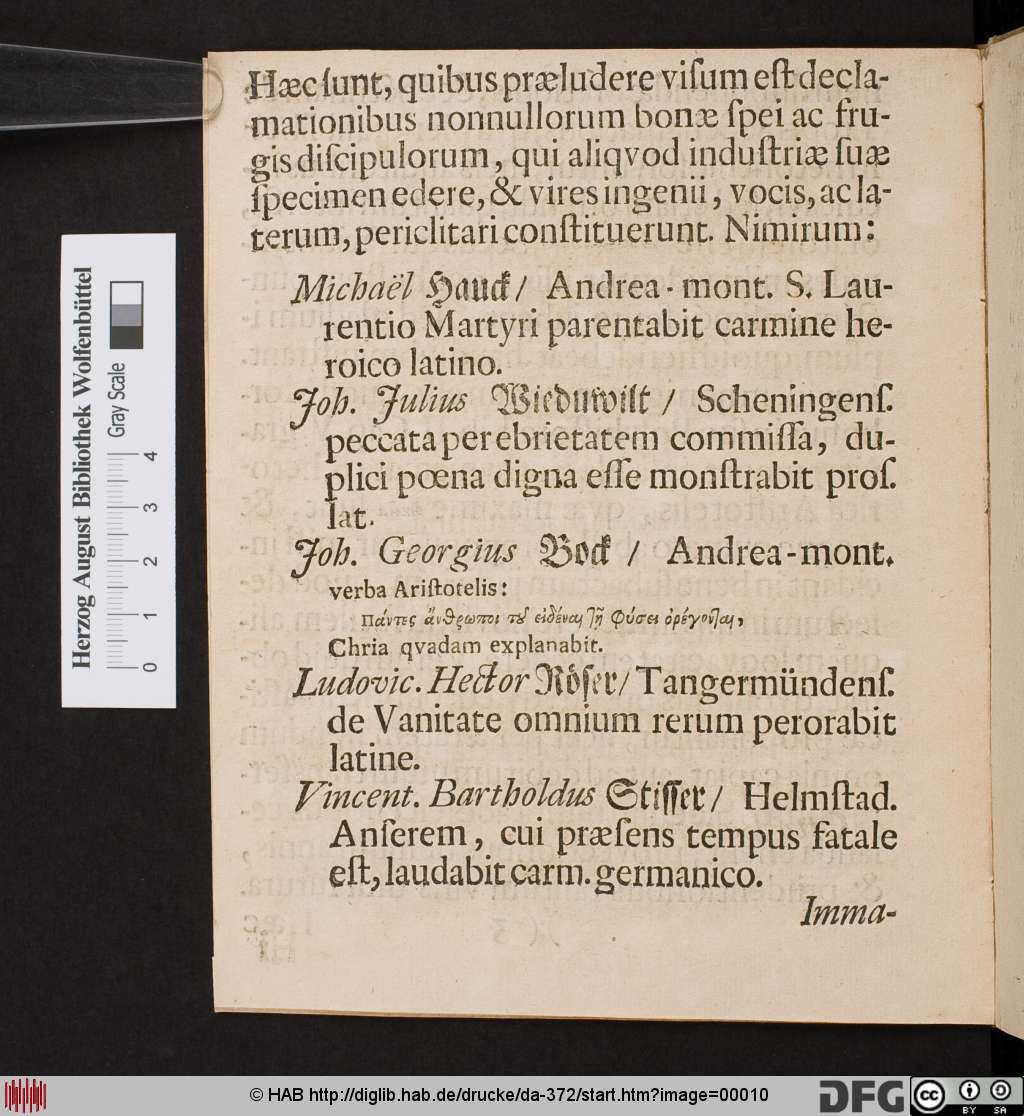 Hæc ſunt, quibus præludere viſum eſt decla-
mationibus nonnullorum bonæ ſpei ac fru-
gis diſcipulorum, qui aliqvod induſtriæ ſuæ
ſpecimen edere, & vires ingenii, vocis, ac la-
terum, periclitari conſtituerunt. Nimirum:
Michaël Hauck/ Andrea-mont. S. Lau-
rentio Martyri parentabit carmine he-
roico latino.
Joh. Julius Wieduwilt / Scheningenſ.
peccata per ebrietatem commiſſa, du-
plici pœna digna eſſe monſtrabit proſ.
lat.
Joh. Georgius Bock / Andrea-mont.
verba Ariſtotelis:
Πάντες ἄνθρωποι τοῦ εἰδέναι τῇ φύσει ὀρέγονται,
Chria qvadam explanabit.
Ludovic. Hector Röſer/ Tangermündenſ.
de Vanitate omnium rerum perorabit
latine.
Vincent. Bartholdus Stiſſer/ Helmſtad.
Anſerem, cui præſens tempus fatale
eſt, laudabit carm. germanico.
Imma-
Herzog August Bibliothek Wolfenbüttel
Gray Scale
0 1 2 3 4
© HAB http://diglib.hab.de/drucke/da-372/start.htm?image=00010
DFG
cc BY SA